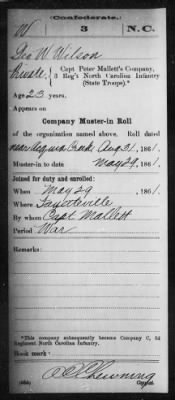 (Confederate.)
W 3 N.C.
Geo W. Wilson
Private, Capt Peter Mallett's Company,
3 Reg't North Carolina Infantry
(State Troops).*
Age 23 years.
Appears on
Company Muster-in Roll
of the organization named above. Roll dated
near Acquia Creek Aug 31, 1861.
Muster-in to date May 29, 1861.
Joined for duty and enrolled:
When May 29, 1861.
Where Fayetteville
By whom Capt Mallett
Period War
Remarks:
*This company subsequently became Company C, 3d
Regiment North Carolina Infantry.
Book mark:
Copyist.